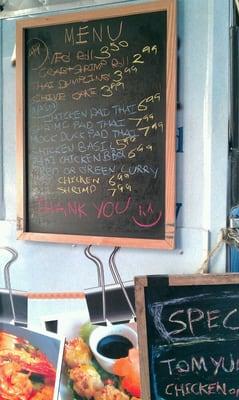 MENU
VEG Roll 3.50
CRAB+SHRIMP Roll 2.99
THAI DUMPLING 3.99
CHIVE CAKE 3.99
CHICKEN PAD THAI 6.99
SHRIMP PAD THAI 7.99
MOCK DUCK PAD THAI 7.99
CHICKEN BASIL 5.99
THAI CHICKEN BBQ 6.99
RED OR GREEN CURRY
CHICKEN 6.99
SHRIMP 7.99
THANK YOU
SPEC
TOM YU
CHICKEN OR